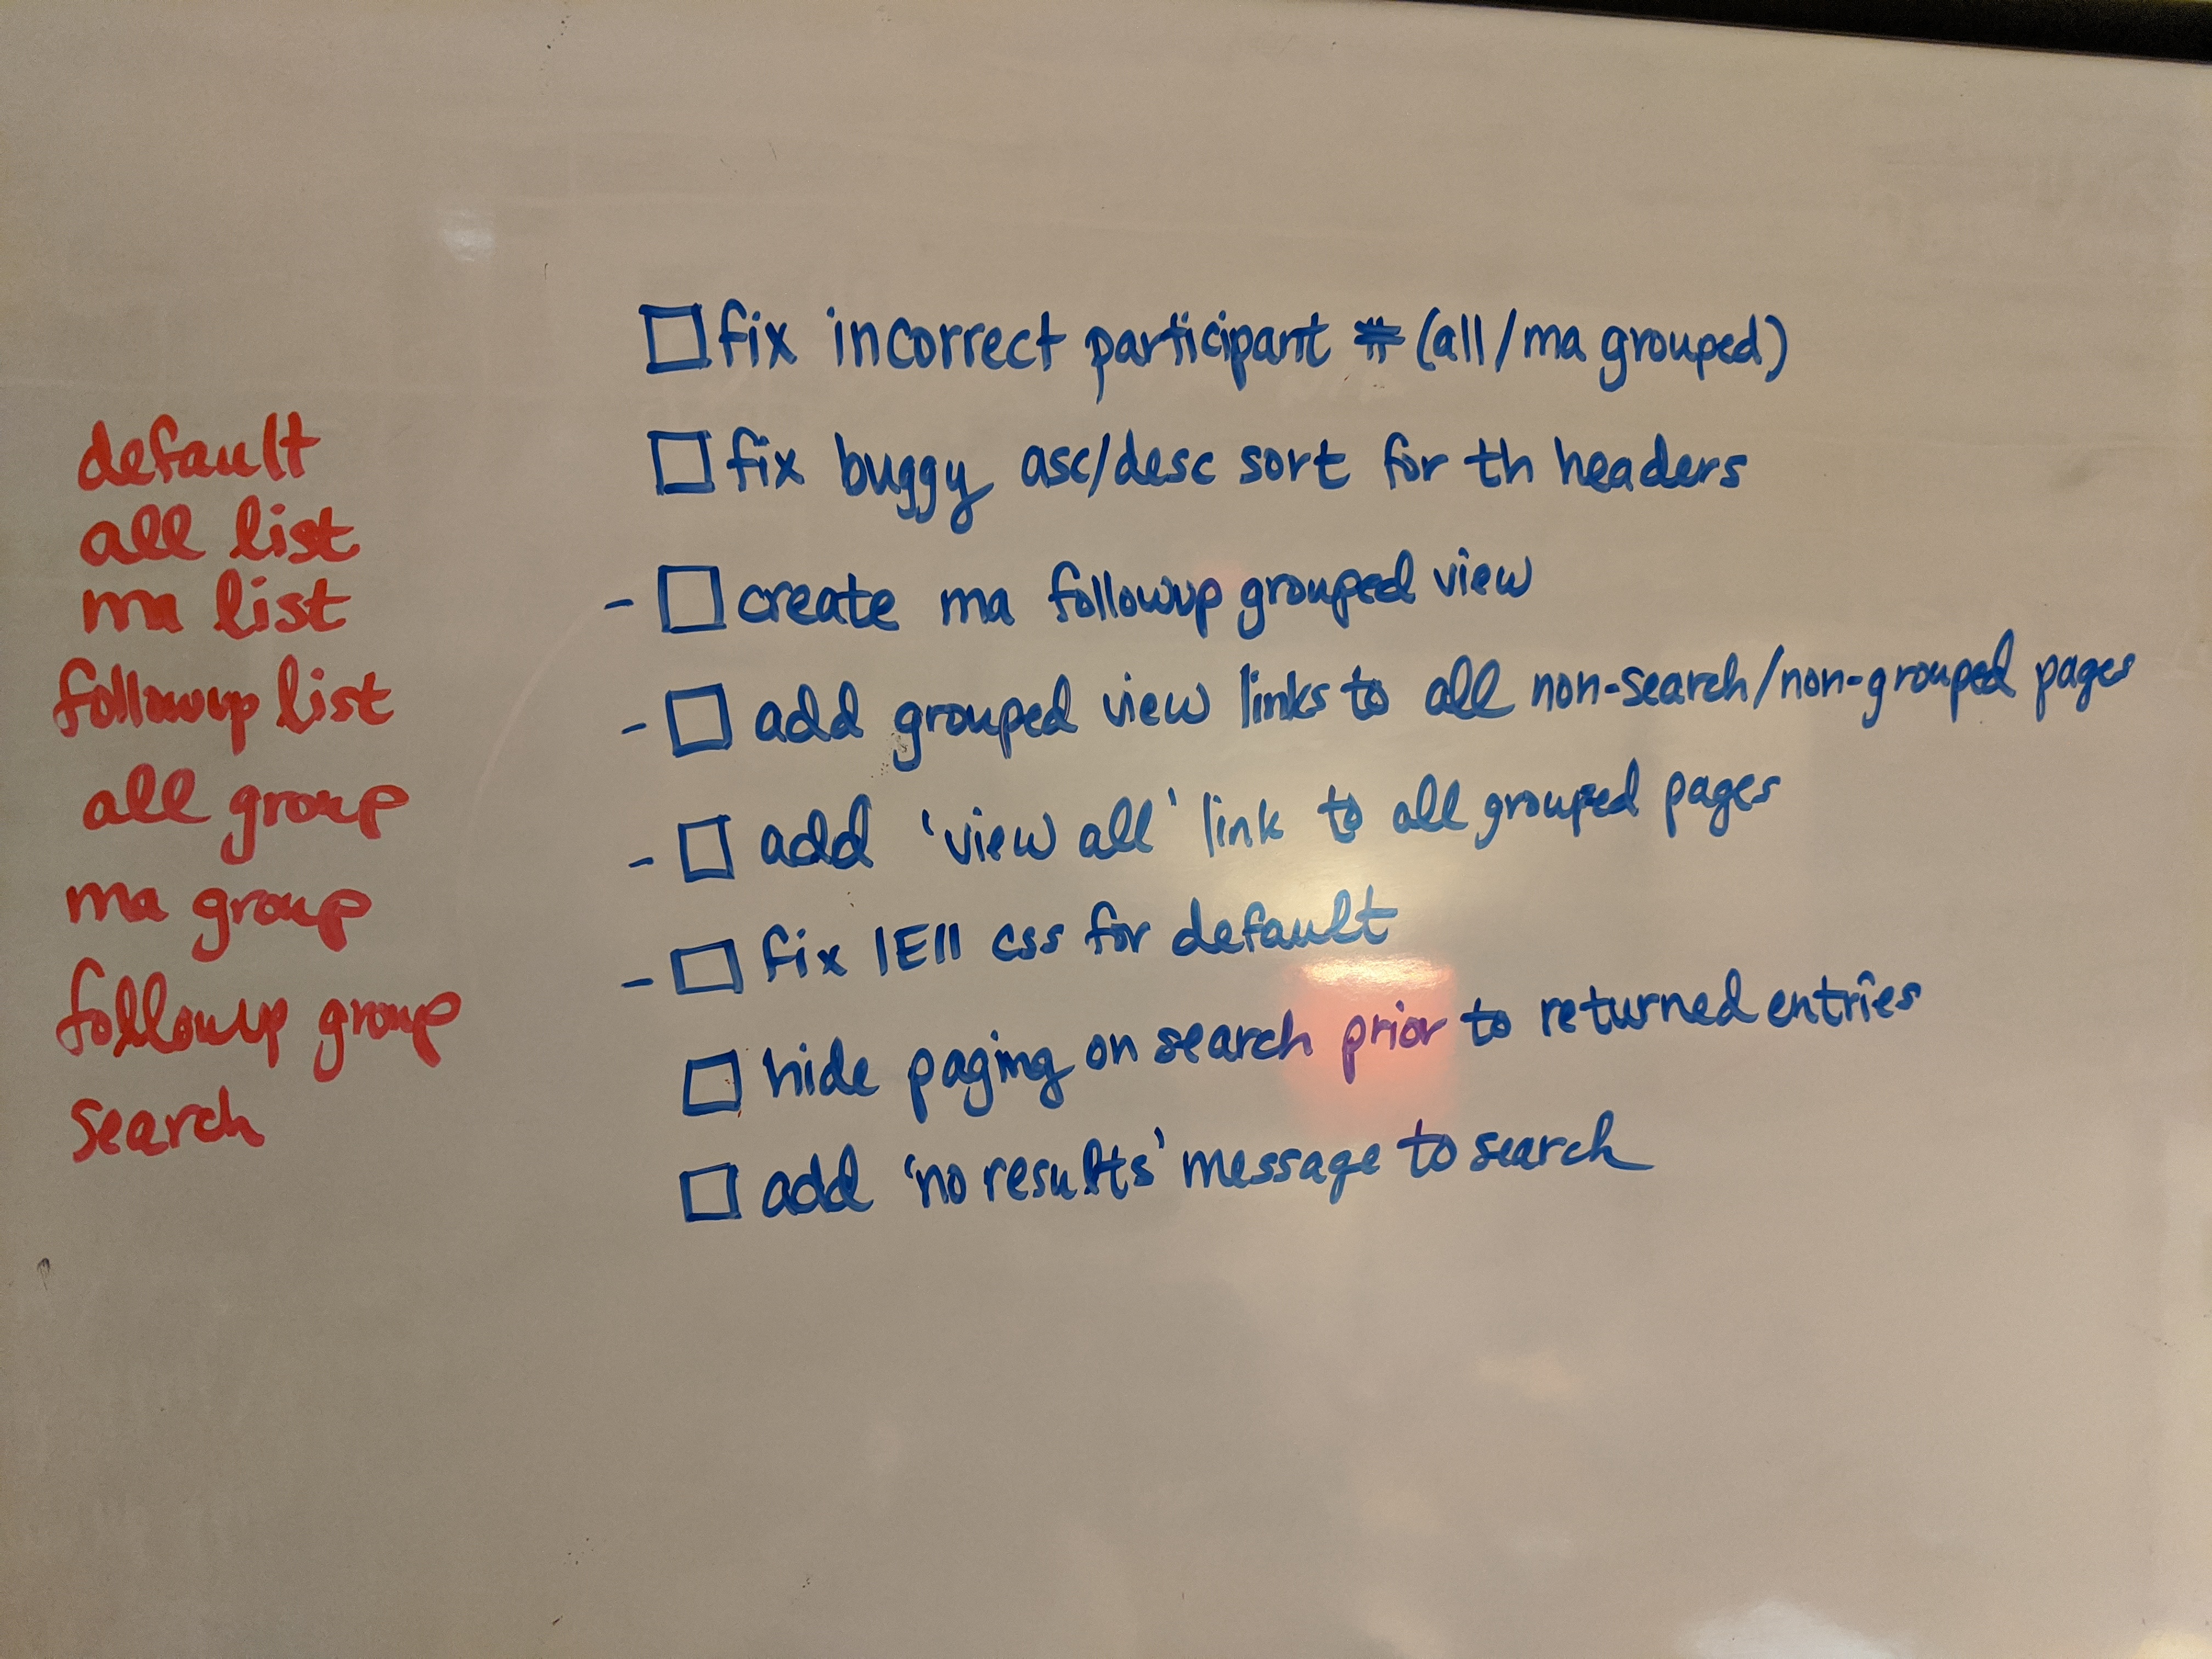 default
all list
ma list
followup list
all group
ma group
followup group
search
□ fix incorrect participant # (all/ma grouped)
□ fix buggy asc/desc sort for th headers
- □ create ma followup grouped view
- □ add grouped view links to all non-search/non-grouped pages
- □ add 'view all' link to all grouped pages
- □ fix IE11 css for default
□ hide paging on search prior to returned entries
□ add 'no results' message to search